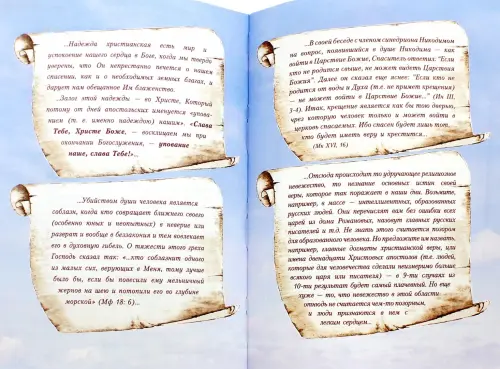 ...Надежда христианская есть мир и
успокоение нашего сердца в Боге, когда мы твердо
уверены, что Он непрестанно печется о нашем
спасении, как и о необходимых земных благах, и
дарует нам обещанное Им блаженство.
...Залог этой надежды — во Христе, Который
потому от дней апостольских именуется «упова-
нием (т. е. именно надеждою) нашим». «Слава
Тебе, Христе Боже, — восклицаем мы при
окончании Богослужения, — упование
наше, слава Тебе!»...
...Убийством души человека является
соблазн, когда кто совращает ближнего своего
(особенно юных и неопытных) в неверие или
разврат и вообще в беззакония и тем вовлекает
его в духовную гибель. О тяжести этого греха
Господь сказал так: «...кто соблазнит одного
из малых сих, верующих в Меня, тому лучше
было бы, если бы повесили ему мельничный
жернов на шею и потопили его во глубине
морской» (Мф 18: 6)...
...В своей беседе с членом синедриона Никодимом
на вопрос, появившийся в душе Никодима — как
войти в Царствие Божие, Спаситель ответил: "Если
кто не родится свыше, не может видеть Царствия
Божия". Далее он сказал еще яснее: "Если кто не
родится от воды и Духа (т.е. не примет крещения)
— не может войти в Царствие Божие..." (Ин III,
3-4). Итак, крещение является как бы тою дверью,
чрез которую человек только и может войти в
церковь спасаемых. Ибо спасен будет лишь тот,
кто будет иметь веру и крестится...
(Мк XVI, 16)
...Отсюда происходит то удручающее религиозное
невежество, то незнание основных истин своей
веры, которое так поражает в наши дни. Возьмите,
например, в массе — интеллигентных, образованных
русских людей. Они перечислят вам без ошибки всех
царей из дома Романовых, назовут главных русских
писателей и т.д. Не знать этого считается позором
для образованного человека. Но предложите им назвать,
например, главные догматы христианской веры, или
имена двенадцати Христовых апостолов (т.е. людей,
которые для человечества сделали неизмеримо больше
всякого царя или писателя) — в 9-ти случаях из
10-ти результат будет самый плачевный. Но еще
хуже — то, что невежество в этой области
отнюдь не считается чем-то позорным,
и люди признаются в нем с
легким сердцем...